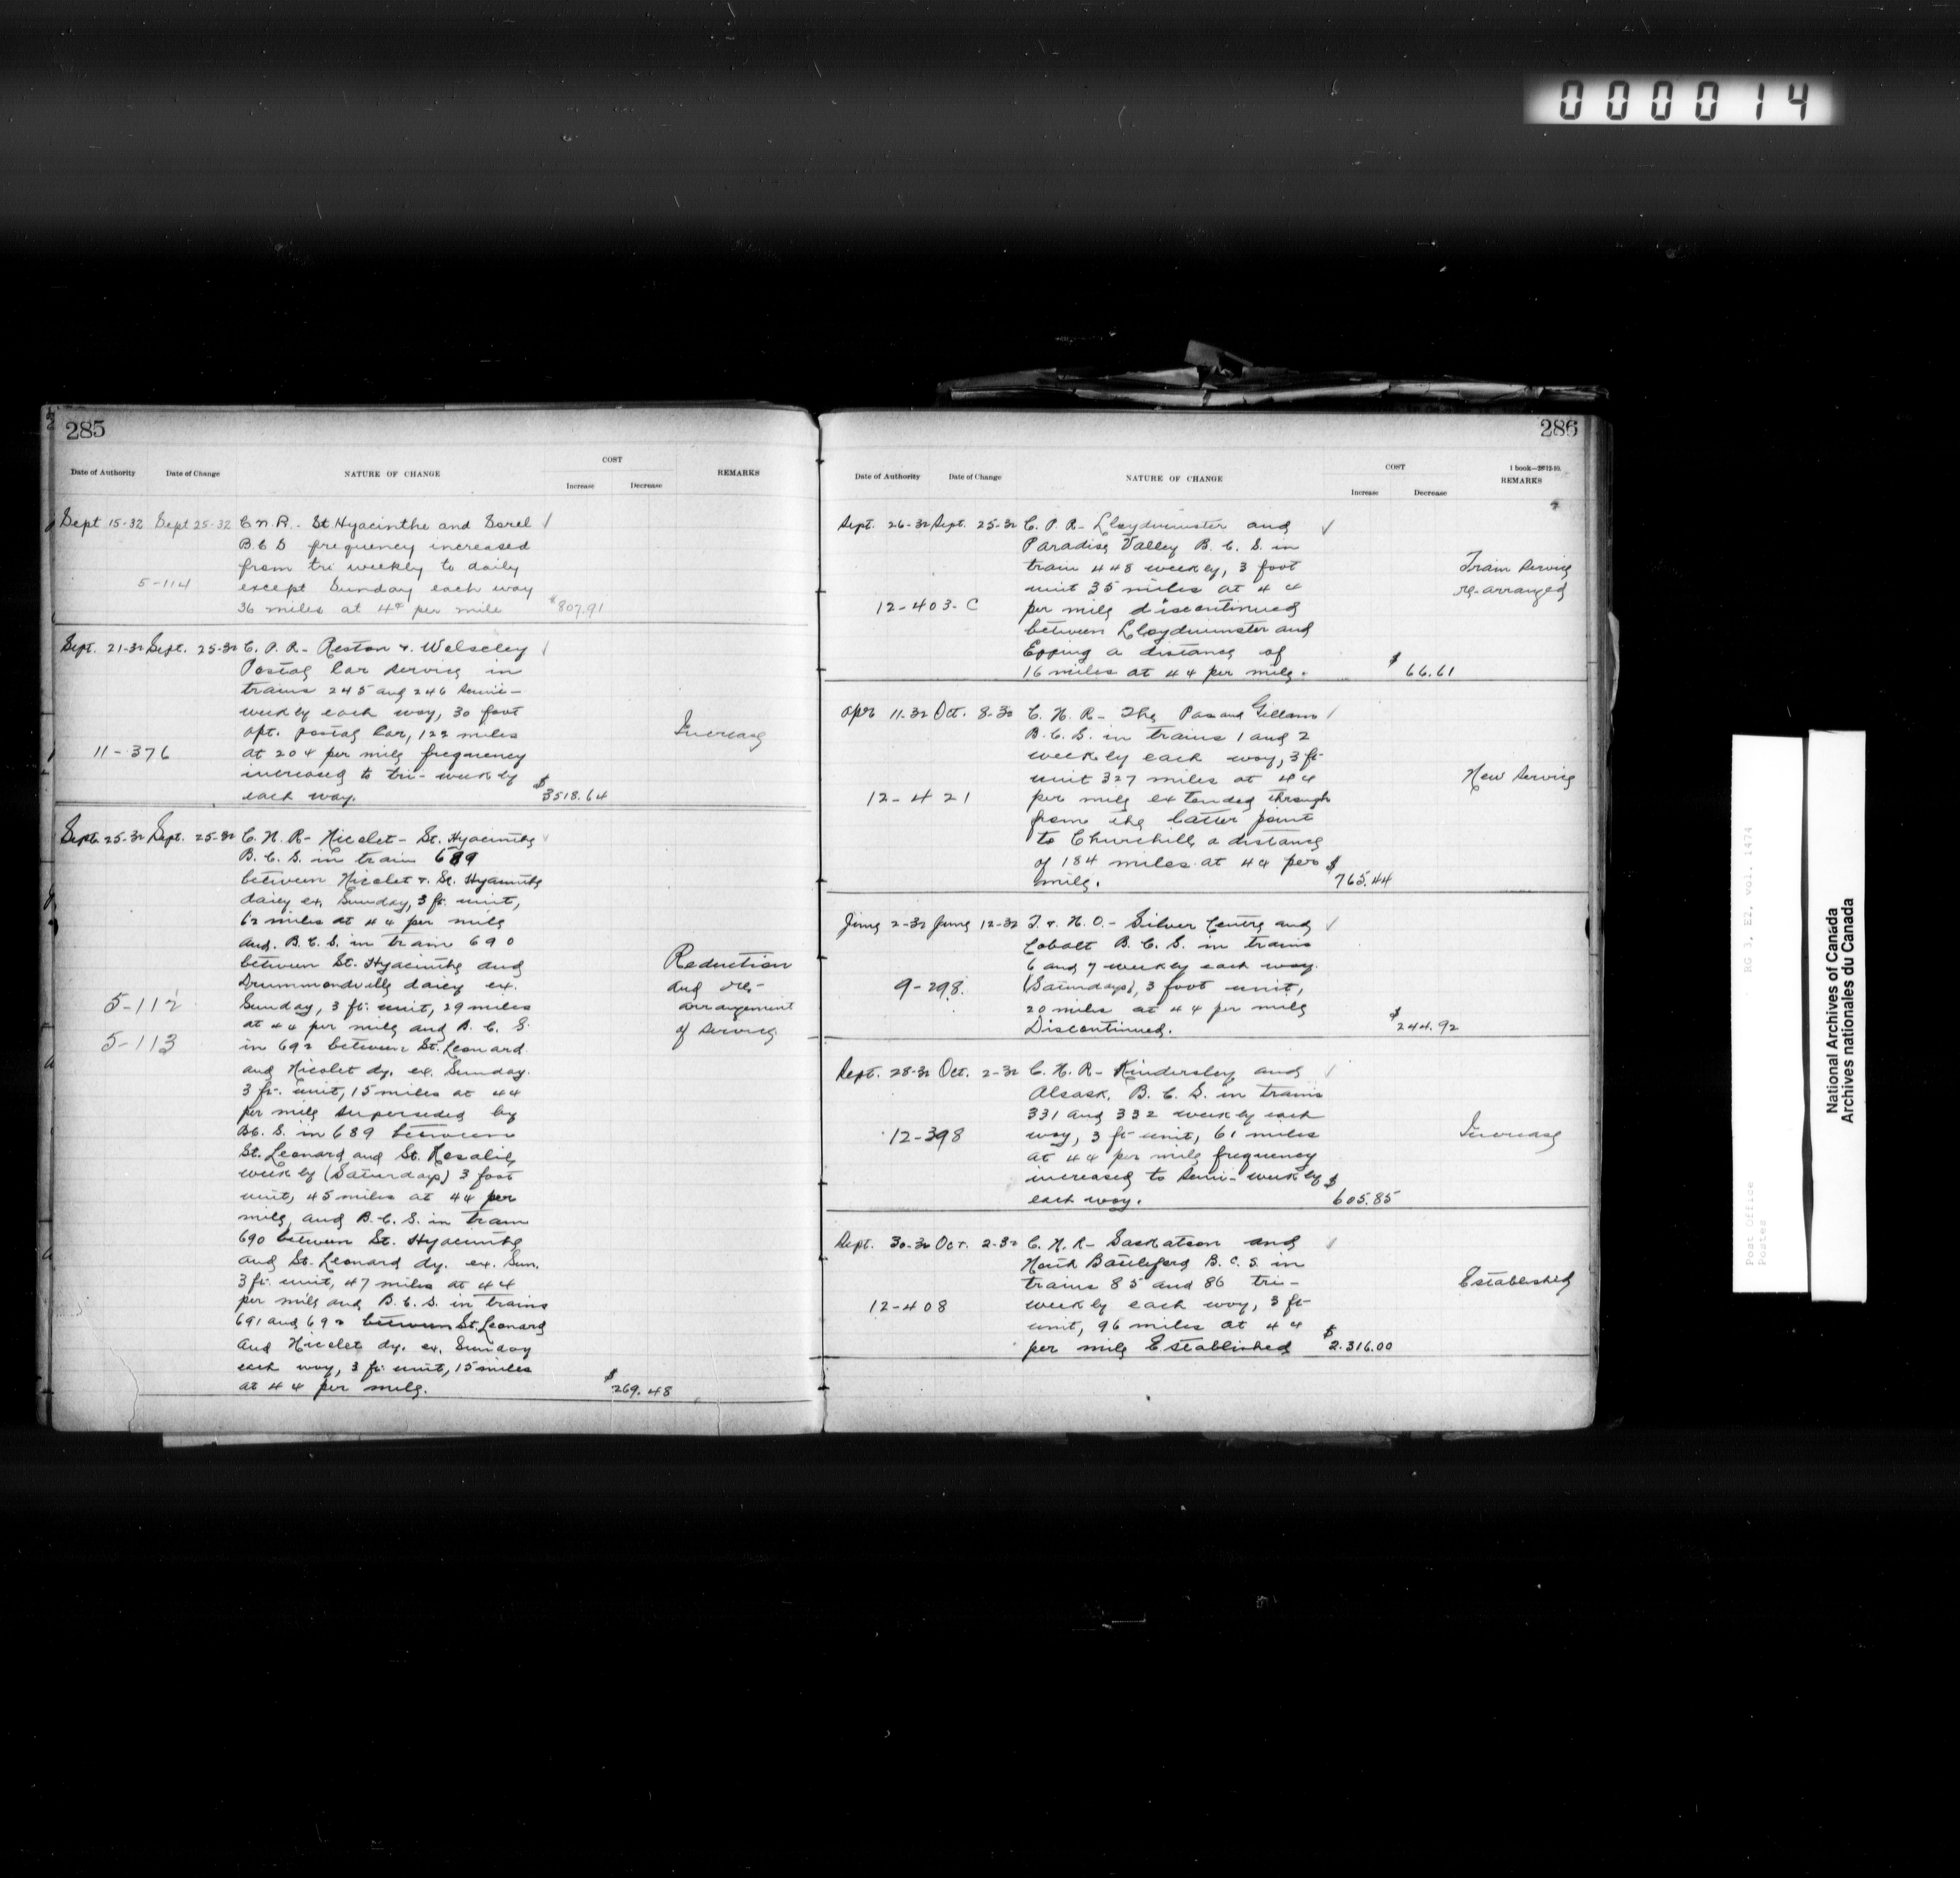 000014
285
Date of Authority Date of Change NATURE OF CHANGE COST REMARKS
Increase Decrease
Sept 15-32 Sept 25-32 C.N.R. - St Hyacinthe and Sorel
B.C.S frequency increased
from tri weekly to daily
5-114 except Sunday each way
36 miles at 4¢ per mile $807.91
Sept. 21-32 Sept. 25-32 C. P. R - Reston & Wolseley
Postal Car service in
trains 245 and 246 semi-
weekly each way, 30 foot
apt. postal car, 122 miles Increase
11-376 at 20¢ per mile frequency
increased to tri-weekly
each way. $3518.64
Sept. 25-32 Sept. 25-32 C. N. R - Nicolet - St. Hyacinthe
B. C. S. in train 689
between Nicolet & St. Hyacinthe
daily ex. Sunday, 3 ft. unit,
62 miles at 4¢ per mile
and B. C. S. in train 690
between St. Hyacinthe and Reduction
Drummondville daily ex. and re-
5-112 Sunday, 3 ft. unit, 29 miles arrangement
at 4¢ per mile and B. C. S. of service
5-113 in 692 between St. Leonard
and Nicolet dy. ex. Sunday.
3 ft. unit, 15 miles at 4¢
per mile superseded by
B.C. S. in 689 between
St. Leonard and St. Rosalie
weekly (Saturdays) 3 foot
unit, 45 miles at 4¢ per
mile, and B. C. S. in train
690 between St. Hyacinthe
and St. Leonard dy. ex. Sun.
3 ft. unit, 47 miles at 4¢
per mile and B. C. S. in trains
691 and 692 between St. Leonard
and Nicolet dy. ex. Sunday
each way, 3 ft. unit, 15 miles
at 4¢ per mile. $269.48
286
Date of Authority Date of Change NATURE OF CHANGE COST 1 book—
Increase Decrease REMARKS
Sept. 26-32 Sept. 25-32 C. P. R - Lloydminster and
Paradise Valley B. C. S. in
train 448 weekly, 3 foot Train service
unit 35 miles at 4¢ re-arranged
12-403-C per mile discontinued
between Lloydminster and
Epping a distance of
16 miles at 4¢ per mile. $66.61
Apr 11-32 Oct. 8-30 C. N. R - The Pas and Gillam
B. C. S. in trains 1 and 2
weekly each way, 3 ft
unit 327 miles at 4¢ New service
12-421 per mile extended through
from the latter point
to Churchill a distance
of 184 miles at 4¢ per
mile. $765.44
June 2-32 June 12-32 T. & N. O. - Silver Centre and
Cobalt B. C. S. in trains
6 and 7 weekly each way
9-298. (Saturdays), 3 foot unit,
20 miles at 4¢ per mile
Discontinued. $244.92
Sept. 28-32 Oct. 2-32 C. N. R - Kindersley and
Alsask. B. C. S. in trains
331 and 332 weekly each
12-398 way, 3 ft unit, 61 miles Increase
at 4¢ per mile frequency
increased to semi-weekly
each way. $605.85
Sept. 30-32 Oct. 2-32 C. N. R - Saskatoon and
North Battleford B. C. S. in
trains 85 and 86 tri- Established
12-408 weekly each way, 3 ft
unit, 96 miles at 4¢
per mile Established $2.316.00
RG 3, E2, vol. 1474
Post Office
Postes
National Archives of Canada
Archives nationales du Canada